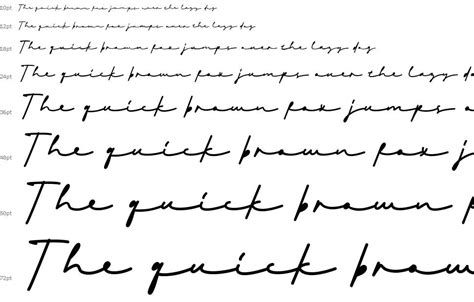 10pt The quick brown fox jumps over the lazy dog
12pt The quick brown fox jumps over the lazy dog
18pt The quick brown fox jumps over the lazy dog
24pt The quick brown fox jumps over the lazy dog
36pt The quick brown fox jumps o
48pt The quick brown fox j
60pt The quick brown
72pt The quick brow